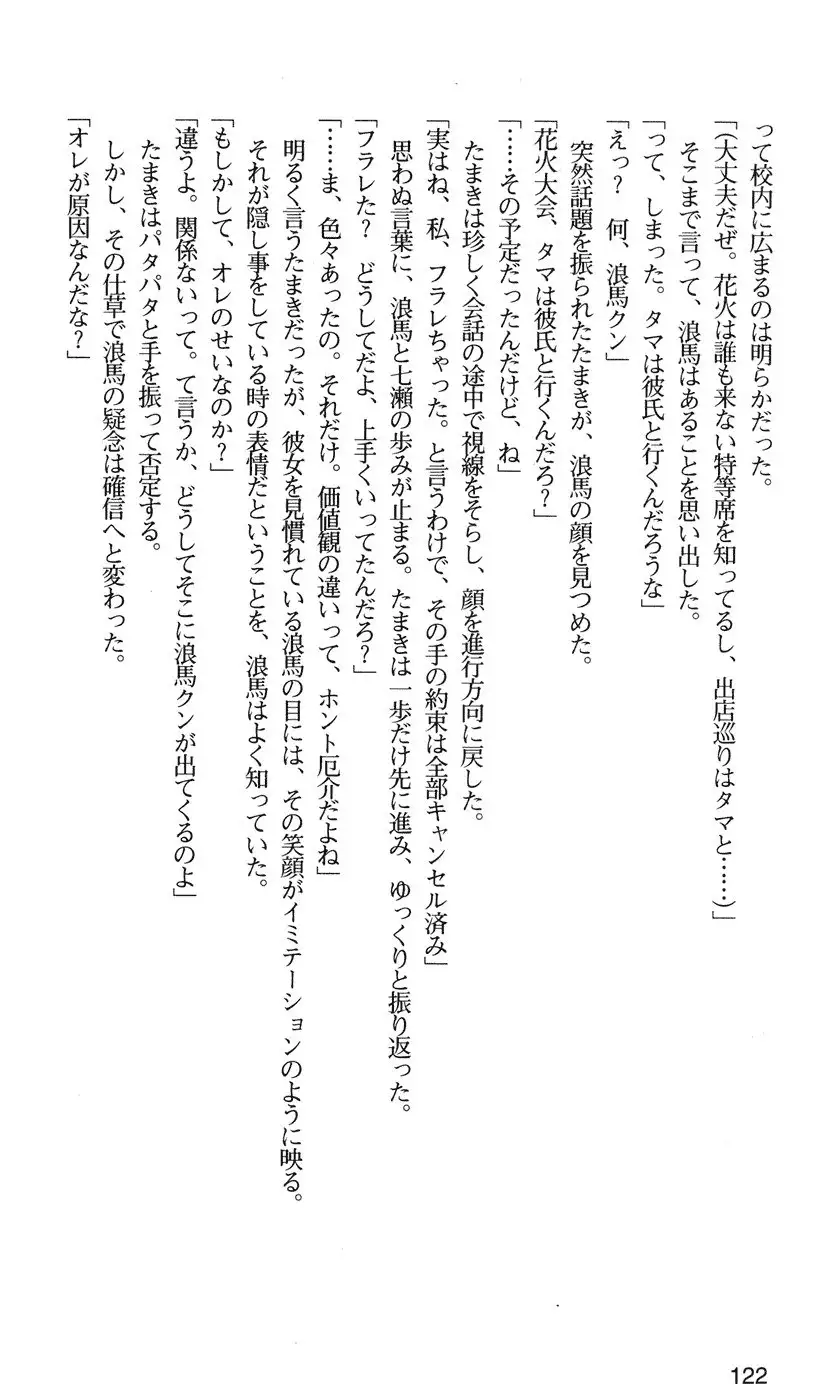 って校内に広まるのは明らかだった。
「(大丈夫だぜ。花火は誰も来ない特等席を知ってるし、出店巡りはタマと……)」
そこまで言って、浪馬はあることを思い出した。
「って、しまった。タマは彼氏と行くんだろうな」
「えっ？　何、浪馬クン」
突然話題を振られたたまきが、浪馬の顔を見つめた。
「花火大会、タマは彼氏と行くんだろ？」
「……その予定だったんだけど、ね」
たまきは珍しく会話の途中で視線をそらし、顔を進行方向に戻した。
「実はね、私、フラレちゃった。と言うわけで、その手の約束は全部キャンセル済み」
思わぬ言葉に、浪馬と七瀬の歩みが止まる。たまきは一歩だけ先に進み、ゆっくりと振り返った。
「フラレた？　どうしてだよ、上手くいってたんだろ？」
「……ま、色々あったの。それだけ。価値観の違いって、ホント厄介だよね」
明るく言うたまきだったが、彼女を見慣れている浪馬の目には、その笑顔がイミテーションのように映る。
それが隠し事をしている時の表情だということを、浪馬はよく知っていた。
「もしかして、オレのせいなのか？」
「違うよ。関係ないって。て言うか、どうしてそこに浪馬クンが出てくるのよ」
たまきはパタパタと手を振って否定する。
しかし、その仕草で浪馬の疑念は確信へと変わった。
「オレが原因なんだな？」
122